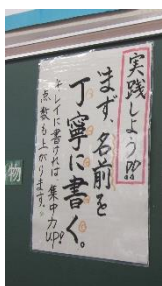 実践しよう!!
まず、名前を
丁寧に書く。
キレイに書ければ、集中力UP!
点数も上がります。
物